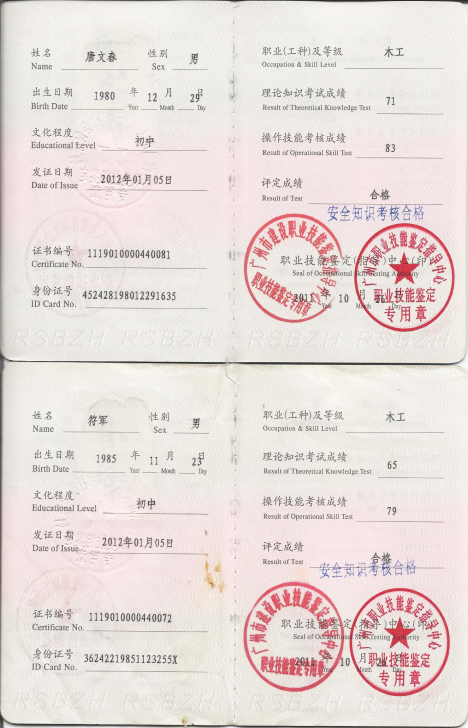 姓名 唐文春 性别 男
Name Sex
出生日期 1980 年 12 月 29日
Birth Date Year Month Day
文化程度 初中
Educational Level
发证日期 2012年01月05日
Date of Issue
证书编号 1119010000440081
Certificate No.
身份证号 452428198012291635
ID Card No.
职业(工种)及等级 木工
Occupation & Skill Level
理论知识考试成绩 71
Result of Theoretical Knowledge Test
操作技能考核成绩 83
Result of Operational Skill Test
评定成绩 合格
Result of Test
安全知识考核合格
职业技能鉴定(指导)中心(印)
Seal of Occupational Skill Testing Authority
2011 年 10 月
Year Month Day
广州市建设职业技能鉴定指导中心
职业技能鉴定专用章
广州市职业技能鉴定指导中心
职业技能鉴定
专用章
RSBZH RSBZH
姓名 符军 性别 男
Name Sex
出生日期 1985 年 11 月 23日
Birth Date Year Month Day
文化程度 初中
Educational Level
发证日期 2012年01月05日
Date of Issue
证书编号 1119010000440072
Certificate No.
身份证号 36242219851123255X
ID Card No.
职业(工种)及等级 木工
Occupation & Skill Level
理论知识考试成绩 65
Result of Theoretical Knowledge Test
操作技能考核成绩 79
Result of Operational Skill Test
评定成绩 合格
Result of Test
安全知识考核合格
职业技能鉴定(指导)中心(印)
Seal of Occupational Skill Testing Authority
2011 年 10 月
Year Month Day
广州市建设职业技能鉴定指导中心
职业技能鉴定专用章
广州市职业技能鉴定指导中心
职业技能鉴定
专用章
RSBZH RSBZH